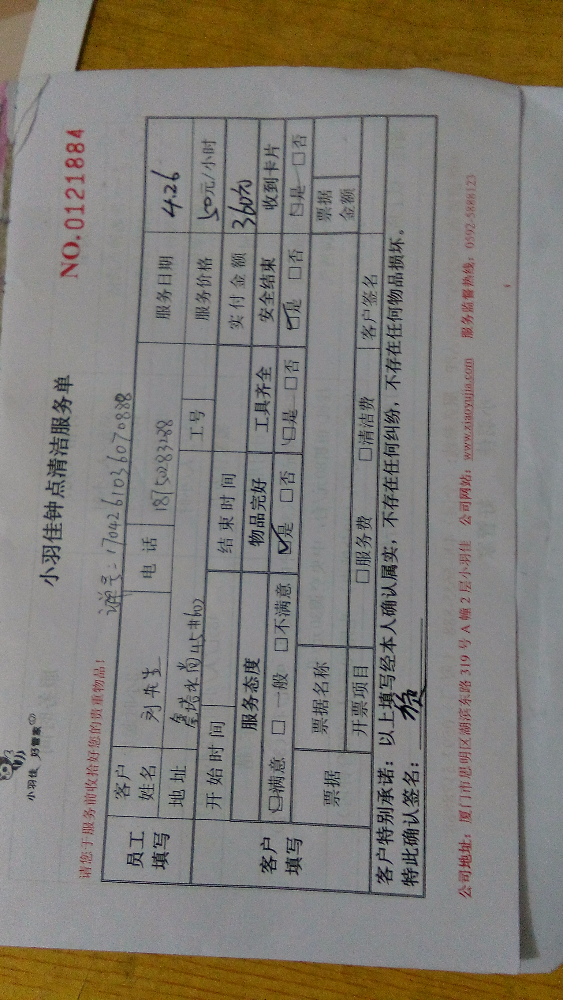 小羽佳 好管家
NO.0121884
小羽佳钟点清洁服务单
请您于服务前收拾好您的贵重物品!
单号:1704261036070888
员工填写
客户姓名 刘 电话 18750283288 服务日期 4.26
地址 工号 服务价格 50元/小时
开始时间 结束时间 实付金额 360元
客户填写
服务态度 物品完好 工具齐全 安全结束 收到卡片
☑满意 □一般 □不满意 ☑是 □否 ☑是 □否 ☑是 □否 ☑是 □否
票据 票据名称 票据金额
开票项目 □服务费 □清洁费 客户签名
客户特别承诺:以上填写经本人确认属实,不存在任何纠纷,不存在任何物品损坏。
特此确认签名:
公司地址:厦门市思明区湖滨东路319号A幢2层小羽佳 公司网站:www.xiaoyujia.com 服务监督热线:0592-5888123